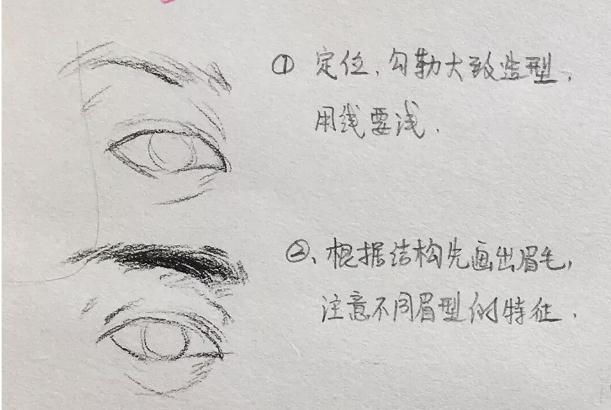 ① 定位，勾勒大致造型，
用线要浅．
②、根据结构先画出眉毛，
注意不同眉型的特征．